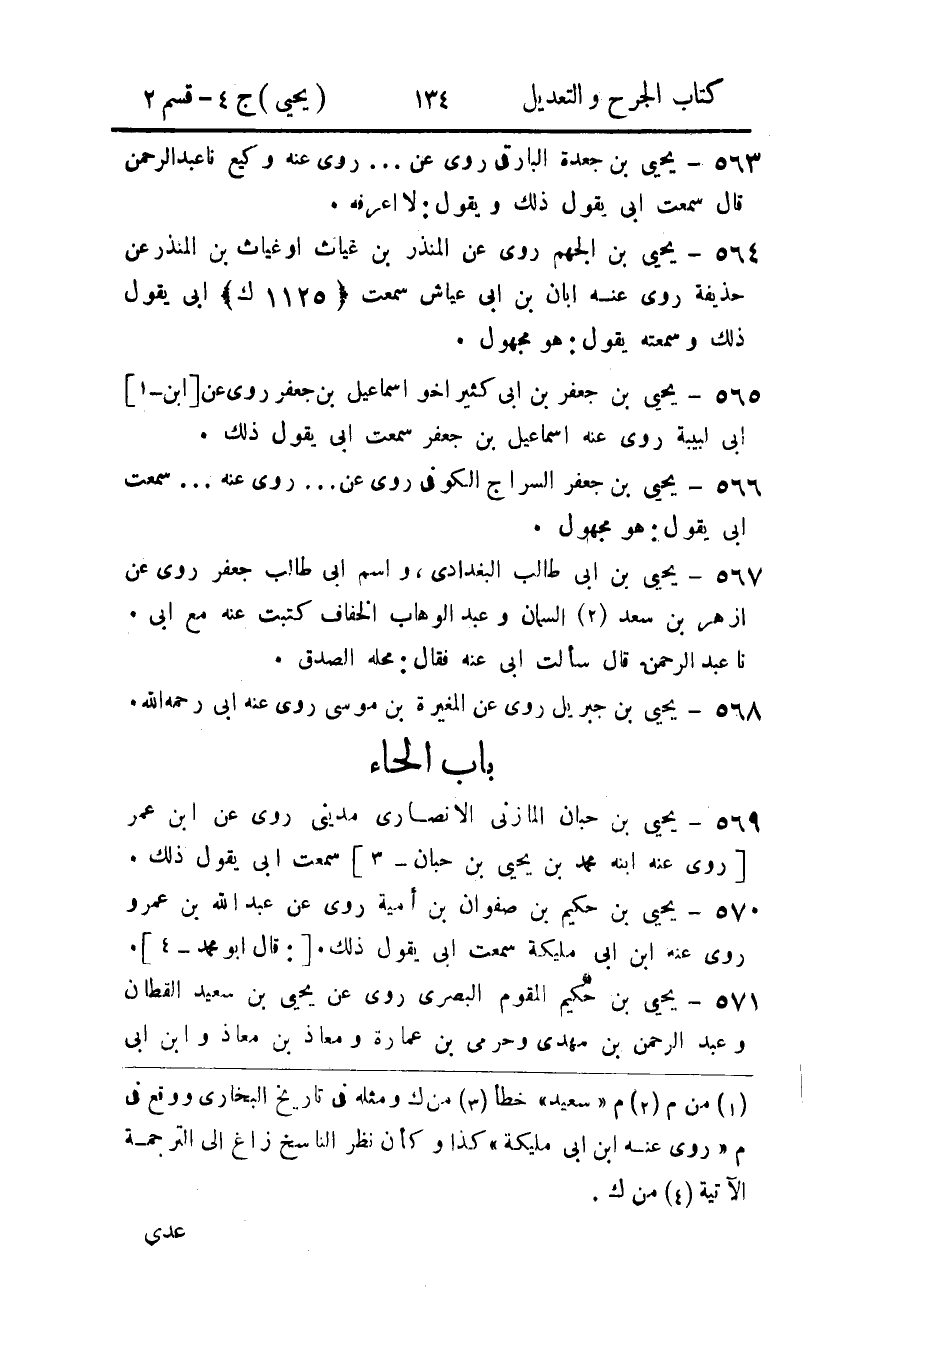 كتاب الجرح و التعديل ١٣٤ (يحيى) ج ٤ - قسم ٢
٥٦٣ - يحيى بن جعدة البارقى روى عن ... روى عنه وكيع نا عبدالرحمن
قال سمعت ابى يقول ذلك و يقول : لا اعرفه .
٥٦٤ - يحيى بن الجهم روى عن المنذر بن غياث او غياث بن المنذر عن
حذيفة روى عنه ابان بن ابى عياش سمعت ﴿ ١١٢٥ ك ﴾ ابى يقول
ذلك و سمعته يقول : هو مجهول .
٥٦٥ - يحيى بن جعفر بن ابى كثير اخو اسماعيل بن جعفر روى عن [ ابن - ١ ]
ابى لبيبة روى عنه اسماعيل بن جعفر سمعت ابى يقول ذلك .
٥٦٦ - يحيى بن جعفر السراج الكوفى روى عن ... روى عنه ... سمعت
ابى يقول : هو مجهول .
٥٦٧ - يحيى بن ابى طالب البغدادى ، و اسم ابى طالب جعفر روى عن
ازهر بن سعد (٢) السمان و عبد الوهاب الخفاف كتبت عنه مع ابى .
نا عبد الرحمن قال سألت ابى عنه فقال : محله الصدق .
٥٦٨ - يحيى بن جبريل روى عن المغيرة بن موسى روى عنه ابى رحمه الله .
باب الحاء
٥٦٩ - يحيى بن حبان المازنى الانصارى مدينى روى عن ابن عمر
[ روى عنه ابنه محمد بن يحيى بن حبان - ٣ ] سمعت ابى يقول ذلك .
٥٧٠ - يحيى بن حكيم بن صفوان بن أمية روى عن عبد الله بن عمرو
روى عنه ابن ابى مليكة سمعت ابى يقول ذلك . [ : قال ابو محمد - ٤ ] .
٥٧١ - يحيى بن حكيم المقوم البصرى روى عن يحيى بن سعيد القطان
و عبد الرحمن بن مهدى وحرمى بن عمارة و معاذ بن معاذ و ابن ابى
(١) من م (٢) م « سعيد » خطأ (٣) من ك و مثله فى تاريخ البخارى ووقع فى
م « روى عنه ابن ابى مليكة » كذا و كأن نظر الناسخ زاغ الى الترجمة
الآتية (٤) من ك .
عدي